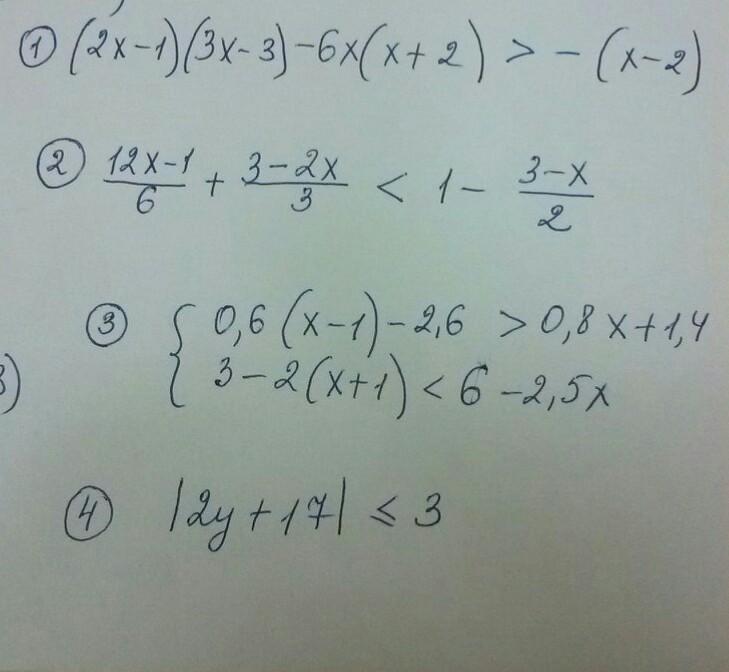 ① (2x-1)(3x-3)-6x(x+2) > -(x-2)
② 12x-1/6 + 3-2x/3 < 1- 3-x/2
③ { 0,6(x-1)-2,6 > 0,8x+1,4
3-2(x+1)<6-2,5x
④ |2y+17| ≤ 3